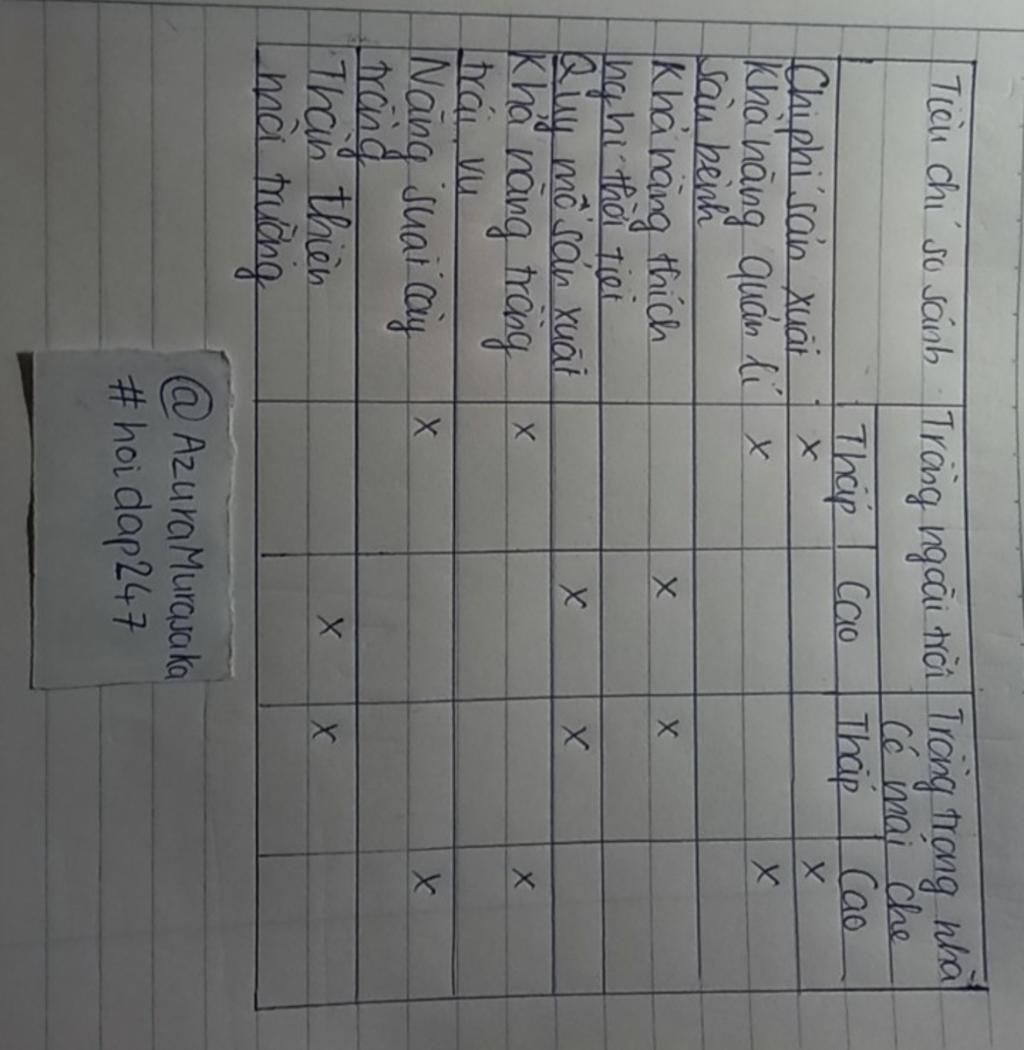 Tiêu chí so sánh
Trồng ngoài trời
Trồng trong nhà
có mái che
Thấp
Cao
Thấp
Cao
Chi phí sản xuất x x
Khả năng quản lí x x
sâu bệnh
Khả năng thích x x
nghi thời tiết
Quy mô sản xuất x x
Khả năng trồng x x
trái vụ
Năng suất cây x x
trồng
Thân thiện x x
môi trường
@AzuraMurasaka
#hoidap247